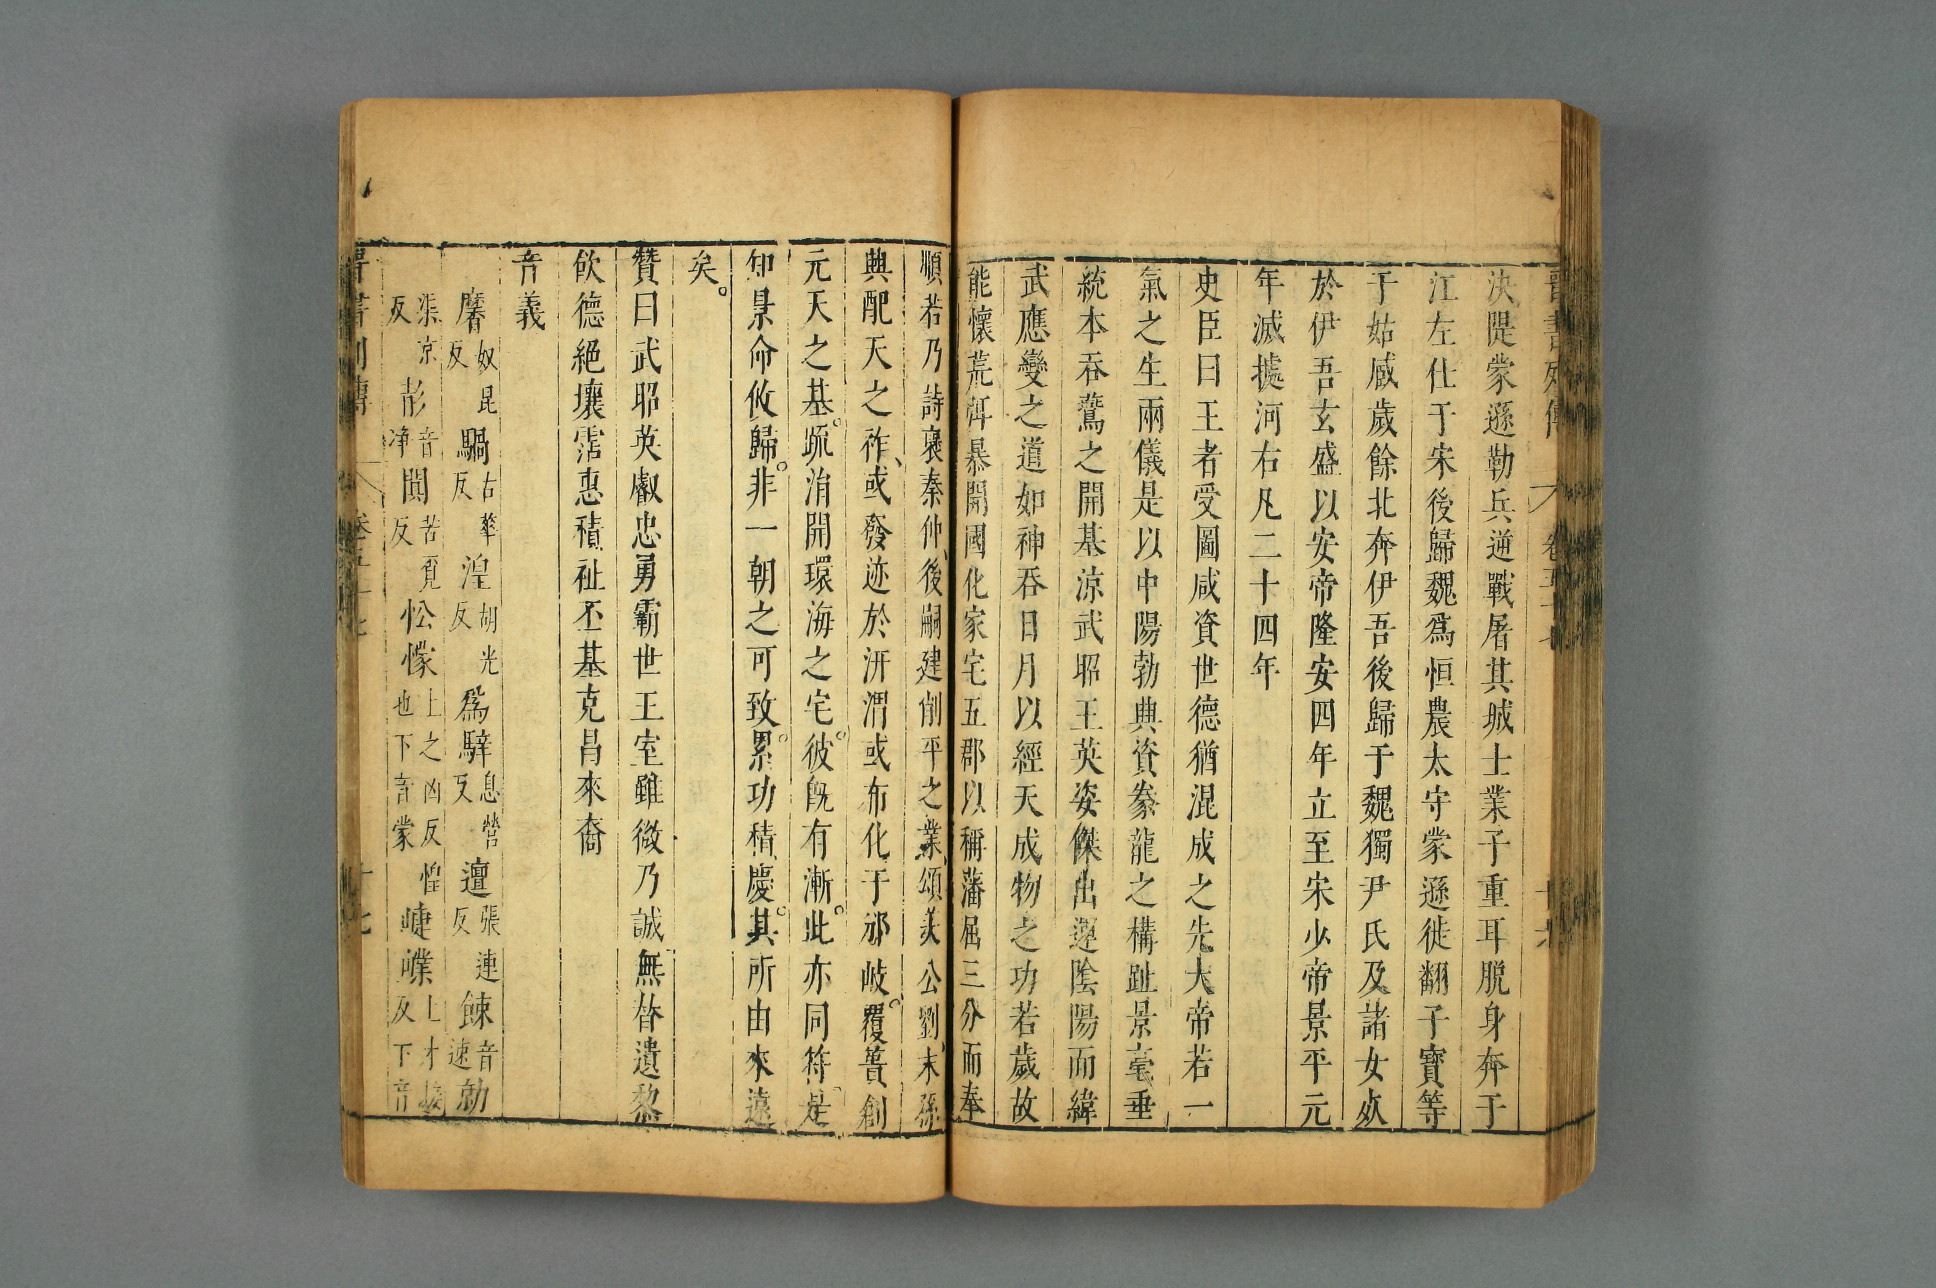 晉書列傳 卷五十七 十六
決隄蒙遜勒兵逆戰屠其城士業子重耳脫身奔于
江左仕于宋後歸魏爲恒農太守蒙遜徙翻子寶等
于姑臧歲餘北奔伊吾後歸于魏獨尹氏及諸女死
於伊吾玄盛以安帝隆安四年立至宋少帝景平元
年滅據河右凡二十四年
史臣曰王者受圖咸資世德猶混成之先大帝若一
氣之生兩儀是以中陽勃興資豢龍之構趾景亳垂
統本吞鷰之開基涼武昭王英姿傑出運陰陽而緯
武應變之道如神吞日月以經天成物之功若歲故
能懷荒弭暴開國化家宅五郡以稱藩屈三分而奉
順若乃詩褒秦仲後嗣建削平之業頌美公劉末孫
興配天之祚或發迹於汧渭或布化于邠岐覆簣創
元天之基疏涓開環海之宅彼旣有漸此亦同符是
知景命攸歸非一朝之可致累功積慶其所由來遠
矣
贊曰武昭英叡忠勇霸世王室雖微乃誠無替遺黎
飲德絕壤霑惠積祉丕基克昌來裔
音義
黁奴昆反 騧古華反 湟胡光反 爲騂息營反 邅張連反 餗音速 勍
渠京反 彭音淨 闃苦覓反 忪懞上之凶反下音蒙也 惶 啑㗼上才接反下音
晉書列傳 卷五十七 十七